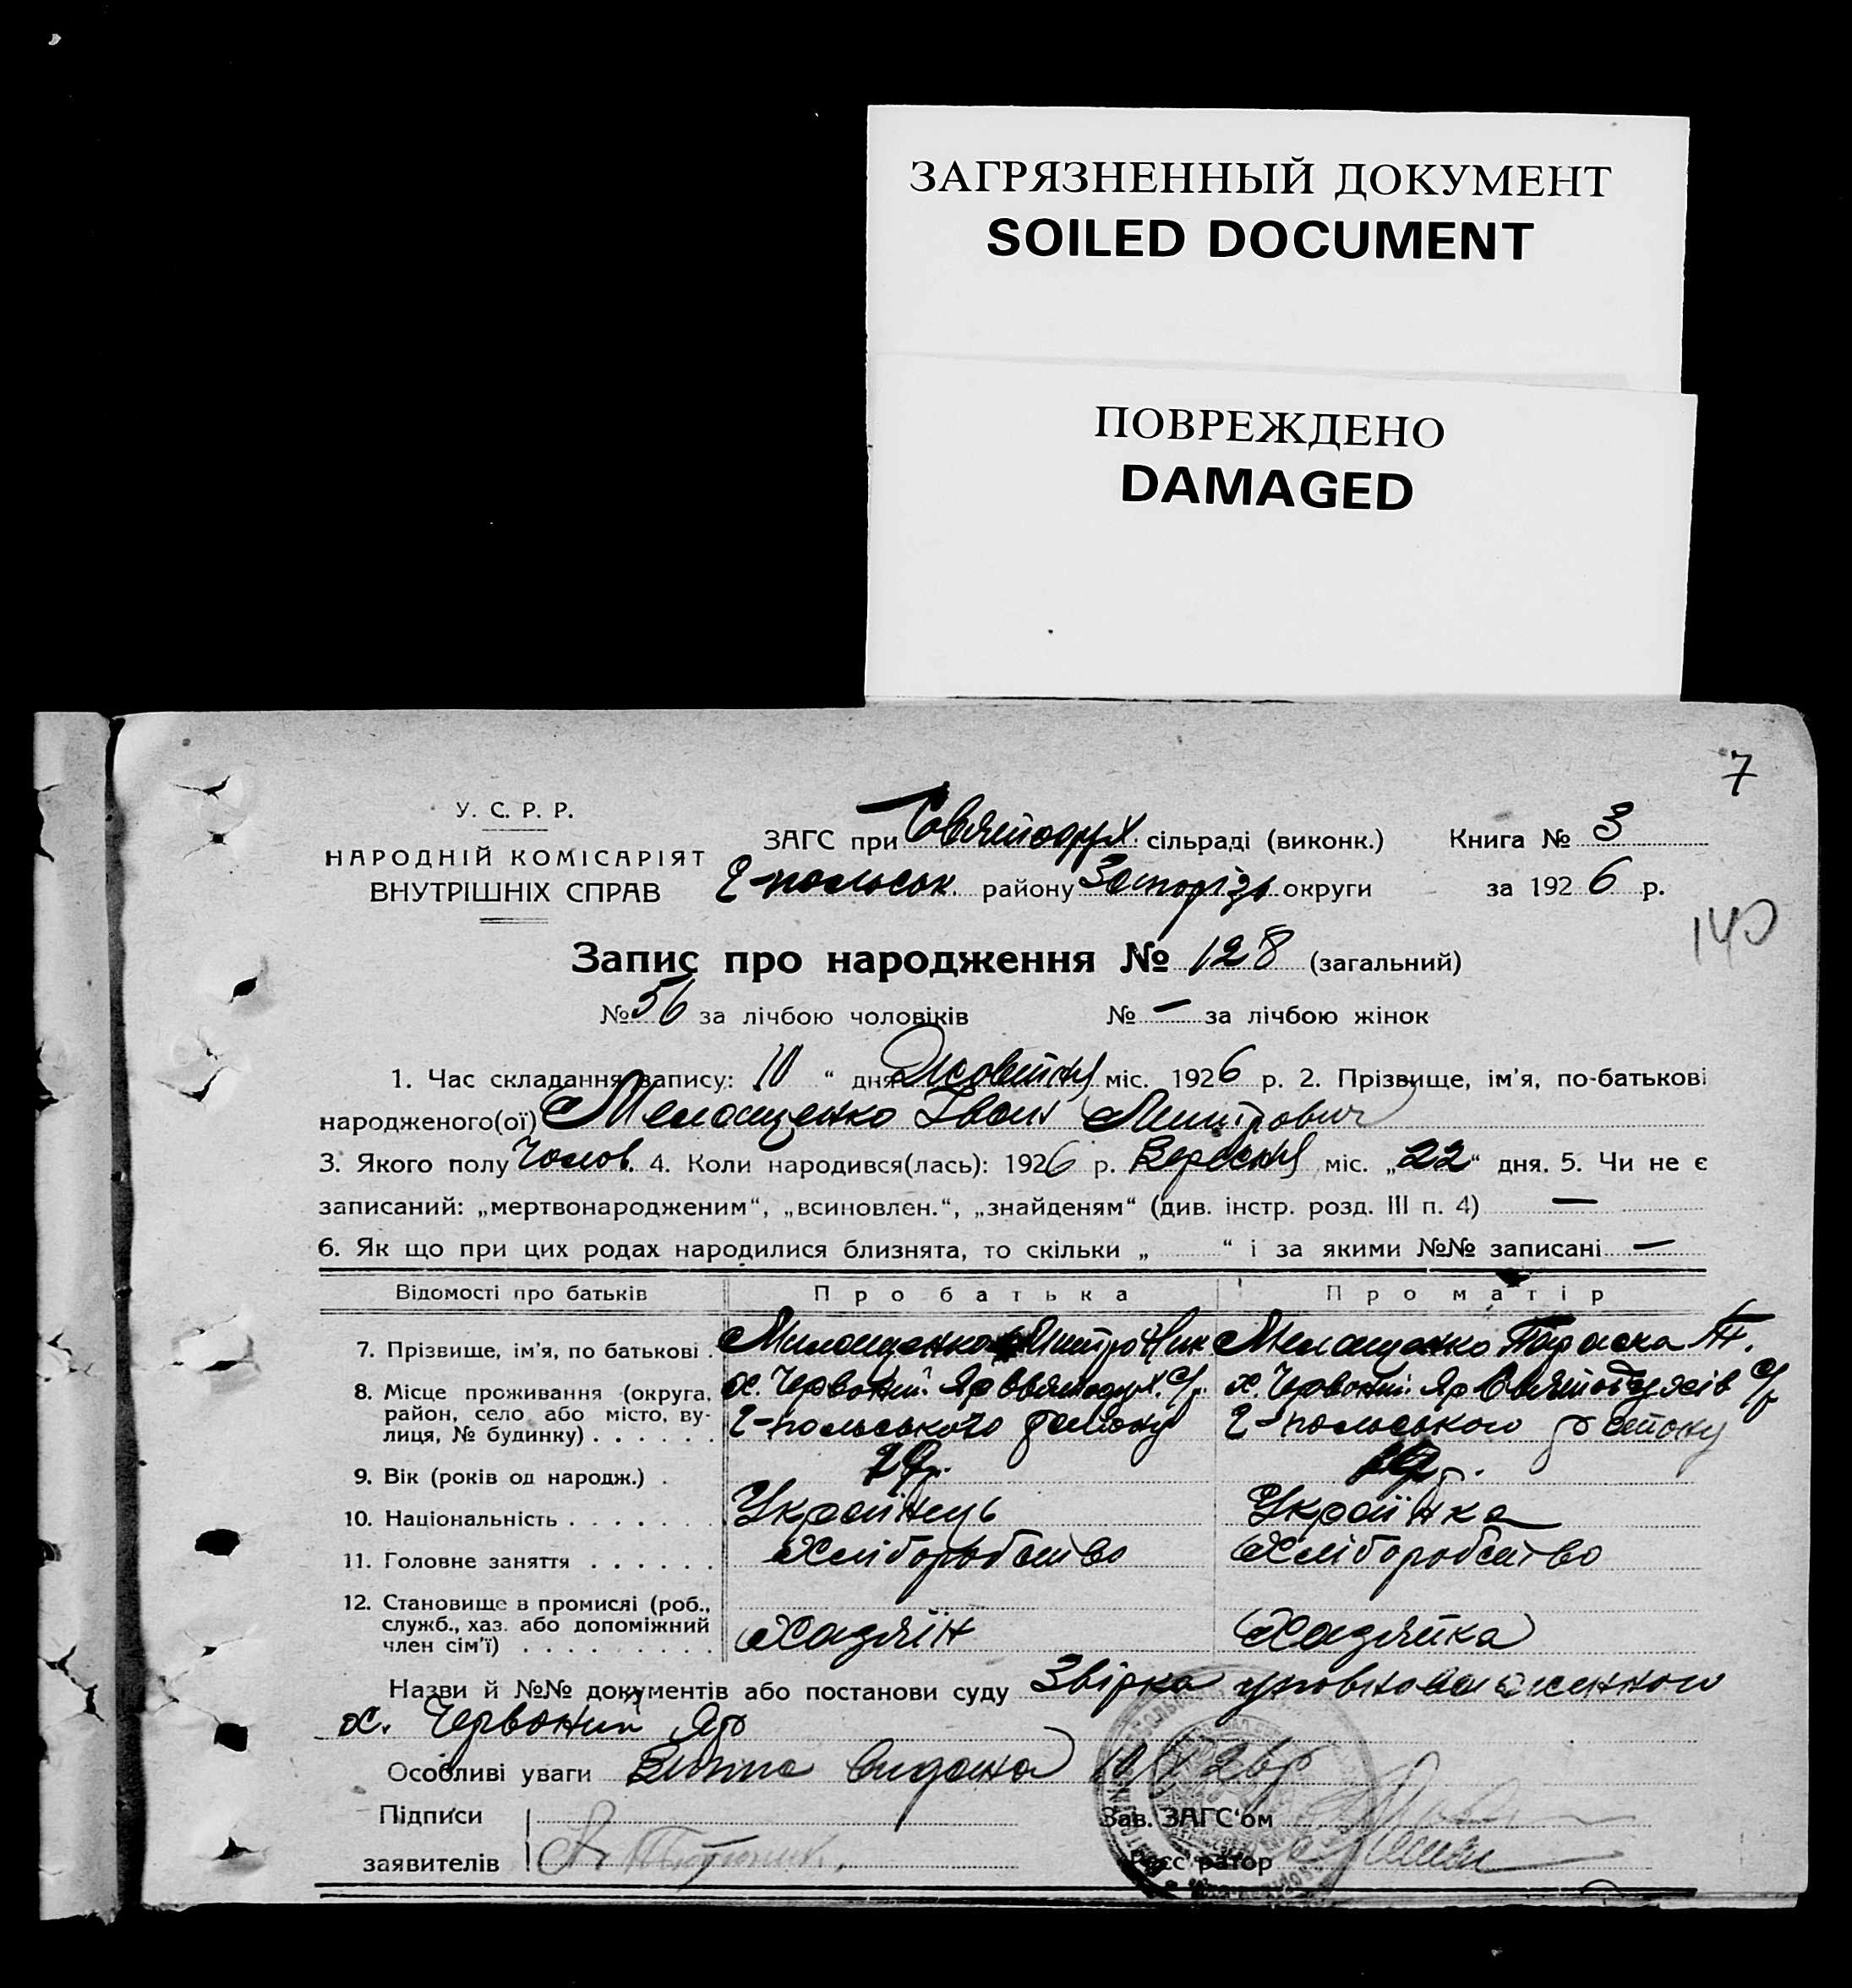 ЗАГРЯЗНЕННЫЙ ДОКУМЕНТ
SOILED DOCUMENT
ПОВРЕЖДЕНО
DAMAGED
7
У. С. Р. Р.
НАРОДНІЙ КОМІСАРІЯТ
ВНУТРІШНІХ СПРАВ
ЗАГС при сільраді (виконк.) Книга № 3
Г-польськ. району Запорізь округи за 1926 р.
140
Запис про народження № 128 (загальний)
№ 56 за лічбою чоловіків № — за лічбою жінок
1. Час складання запису: 10 " дня Жовтня міс. 1926 р. 2. Прізвище, ім'я, по-батькові
народженого(ої) Мелащенко Іван Митрович
3. Якого полу Чолов. 4. Коли народився(лась): 1926 р. Вересня міс. „22“ дня. 5. Чи не є
записаний: „мертвонародженим“, „всиновлен.“, „знайденям“ (див. інстр. розд. III п. 4) —
6. Як що при цих родах народилися близнята, то скільки „ “ і за якими №№ записані —
Відомості про батьків Про батька Про матір
7. Прізвище, ім'я, по батькові . Милащенко Митро Ник Мелащенко Параска Т.
8. Місце проживання (округа, х. Червоний Яр С/р. х. Червоний Яр С/р
район, село або місто, ву-
лиця, № будинку) . . . . . . Г-польського району Г-польського району
9. Вік (років од народж.) .
10. Національність . . . . . . . Українець Українка
11. Головне заняття . . . . . . Хліборобство Хліборобство
12. Становище в промислі (роб.,
служб., хаз. або допоміжний
член сім'ї) . . . . . . . . . Хазяїн Хазяйка
Назви й №№ документів або постанови суду Звірка уповноваженного
х. Червоний Яр
Особливі уваги видана 10/X 26р
Підписи Зав. ЗАГС'ом
заявителів Реєстратор